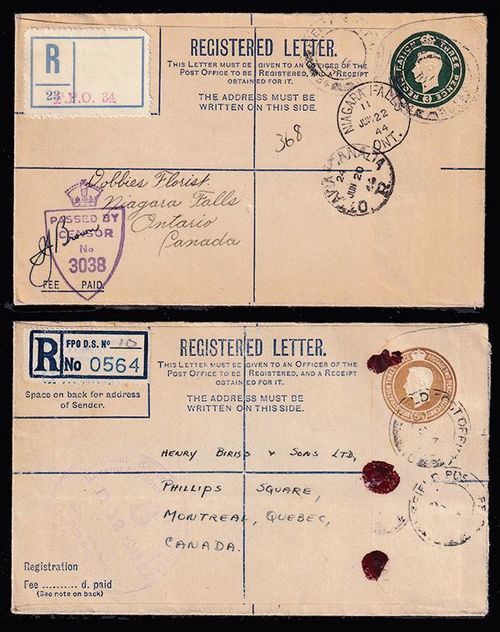 R
23 F.P.O. 34
REGISTERED LETTER.
THIS LETTER MUST BE GIVEN TO AN OFFICER OF THE
POST OFFICE TO BE REGISTERED, AND A RECEIPT
OBTAINED FOR IT.
THE ADDRESS MUST BE
WRITTEN ON THIS SIDE.
REGISTRATION THREE PENCE
NIAGARA FALLS
11
JUN 22
44
ONT.
368
OTTAWA CANADA
24
JUN 20
44
R
Dobbies Florist.
Niagara Falls
Ontario
Canada
PASSED BY
CENSOR
No
3038
FEE PAID.
R
FPO D.S. No 10
No 0564
Space on back for address
of Sender.
REGISTERED LETTER.
THIS LETTER MUST BE GIVEN TO AN OFFICER OF THE
POST OFFICE TO BE REGISTERED, AND A RECEIPT
OBTAINED FOR IT.
THE ADDRESS MUST BE
WRITTEN ON THIS SIDE.
HENRY BIRKS & SONS LTD,
PHILLIPS SQUARE,
MONTREAL, QUEBEC,
CANADA.
Registration
Fee .......... d. paid
(See note on back)